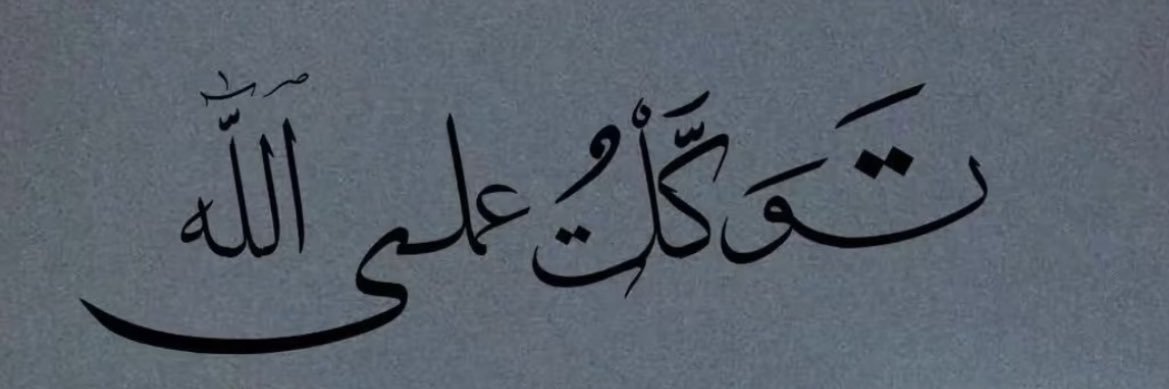 تَوَكَّلْتُ على ٱللَّه